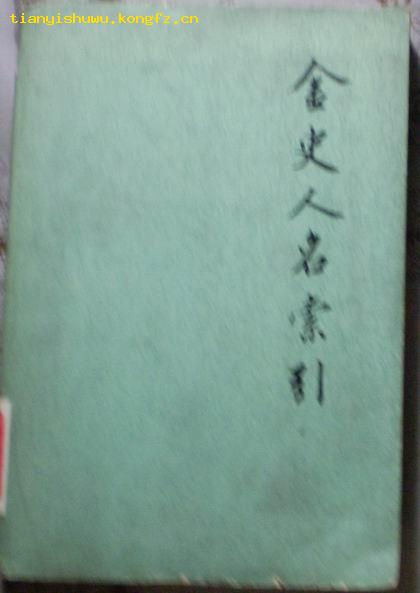 tianyishuwu.kongfz.cn
金史人名索引